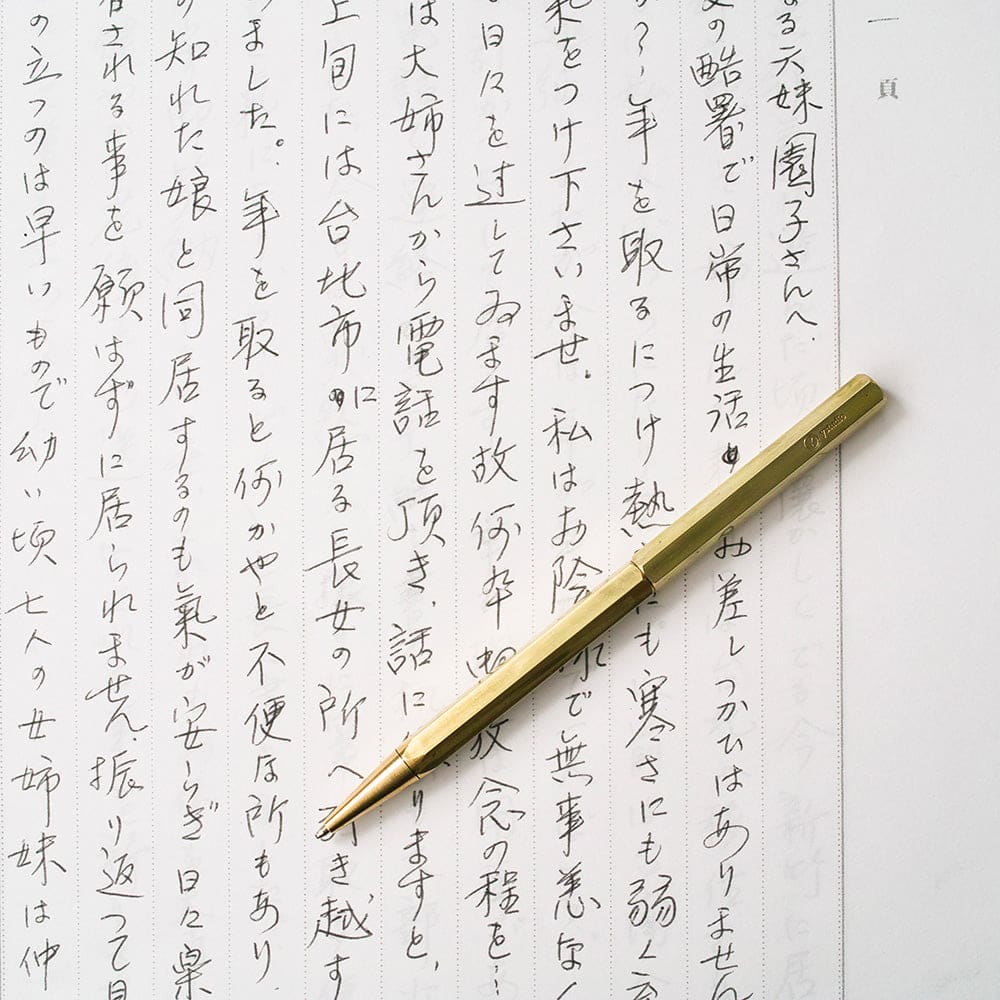 一頁
る六妹園子さんへ、
の酷署で日常の生活 差しつかひはありません
か？年を取るにつけ熱 にも寒さにも弱く
をつけ下さいませ。私はお陰 で無事恙なく
日々を过してゐます故何卆 放念の程を…
は大姉さんから電話を頂き、話に りますと、
上旬には台北市に居る長女の所へ 引き越す
ました。年を取ると何かやと不便な所もあり
知れた娘と同居するのも氣が安らぎ日々
される事を願はずに居られません、振り返って
の立つのは早いもので幼い頃七人の女姉妹は仲
ystudio